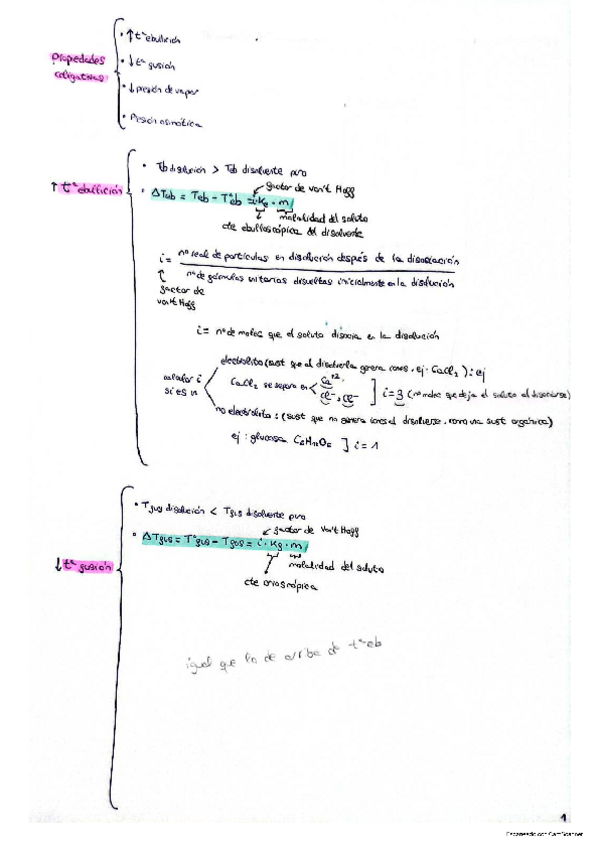 Propiedades
coligativas
· ↑ tª ebullición
· ↓ tª fusión
· ↓ presión de vapor
· Presión osmótica
↑ tª ebullición
· Teb disolución > Teb disolvente puro
factor de van't Hoff
· ΔTeb = Teb - Tºeb = i · Ke · m
molalidad del soluto
cte ebulloscópica del disolvente
i = nº real de partículas en disolución después de la disociación
nº de fórmulas unitarias disueltas inicialmente en la disolución
factor de
van't Hoff
i = nº de moles que el soluto disocia en la disolución
calcular i
si es un
electrolito (sust que al disolverla genera iones. ej. CaCl2) : ej
CaCl2 se separa en Ca+2
Cl-, Cl- ] i = 3 (nº moles que deja el soluto al disociarse)
no electrolito : (sust que no genera iones al disolverse, como una sust orgánica)
ej : glucosa C6H12O6 ] i = 1
↓ tª fusión
· Tfus disolución < Tfus disolvente puro
factor de van't Hoff
· ΔTfus = Tºfus - Tfus = i · Kf · m
molalidad del soluto
cte crioscópica
igual que lo de arriba de tª eb
1
Escaneado con CamScanner